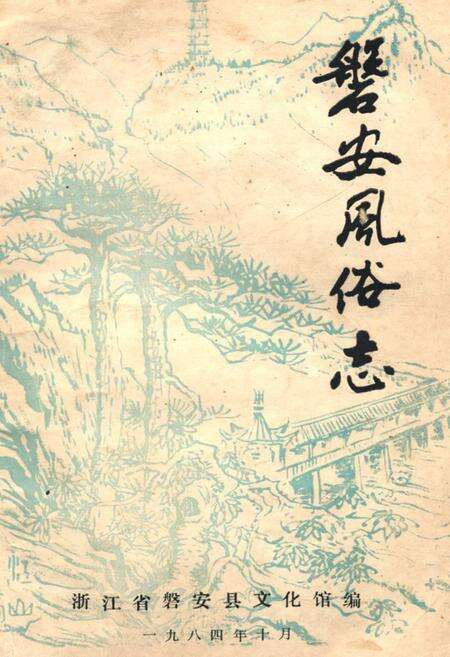 磐安风俗志
浙江省磐安县文化馆编
一九八四年十月